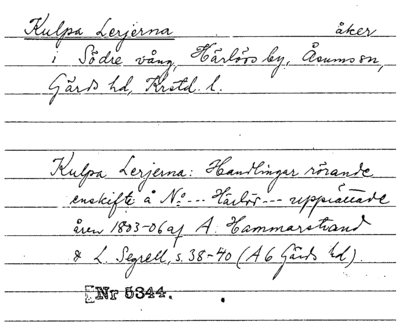 Kulpa Lerjerna åker
i Södre vång, Härlövs by, Åsums sn,
Gärds hd, Krstd. l.
Kulpa Lerjerna: Handlingar rörande
enskifte å No --- Härlöv --- upprättade
åren 1803-06 af A. Hammarstrand
& L. Segrell, s. 38-40 (A 6 Gärds hd).
Nr 5344.